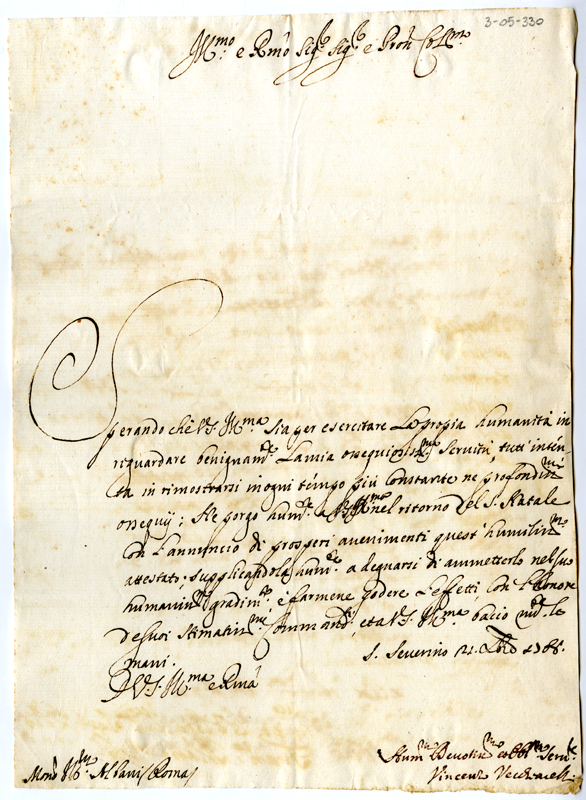 3-05-330
Ill.mo e Rmo Sig.r Sig.r e Pron Col.mo
Sperando chè V.S. Ill.ma sia per esercitare La propia humanità in
riguardare benignam.te La mia ossequiosiss.ma servitù tutt' inten-
ta in rimostrarsi in ogni tempo più constante ne profondiss.mi
ossequij; Ne porgo hum.te a nel ritorno del S. Natale
con l'annuncio di prosperi avenimenti quest' humiliss.mo
attestato; supplicandola hum.te a degnarsi di ammetterlo nel suo
humaniss.mo gradim.to, e farmene godere L'effetti con L'honore
de suoi stimatiss.mi Comandi, et a V.S. Ill.ma bacio le
mani.
S. Severino 21. Xbre
D V.S. Ill.ma e Rma
Mons. Albani Roma
Hum.mo Devotiss.mo et Obl.mo Serv.re
Vincenz